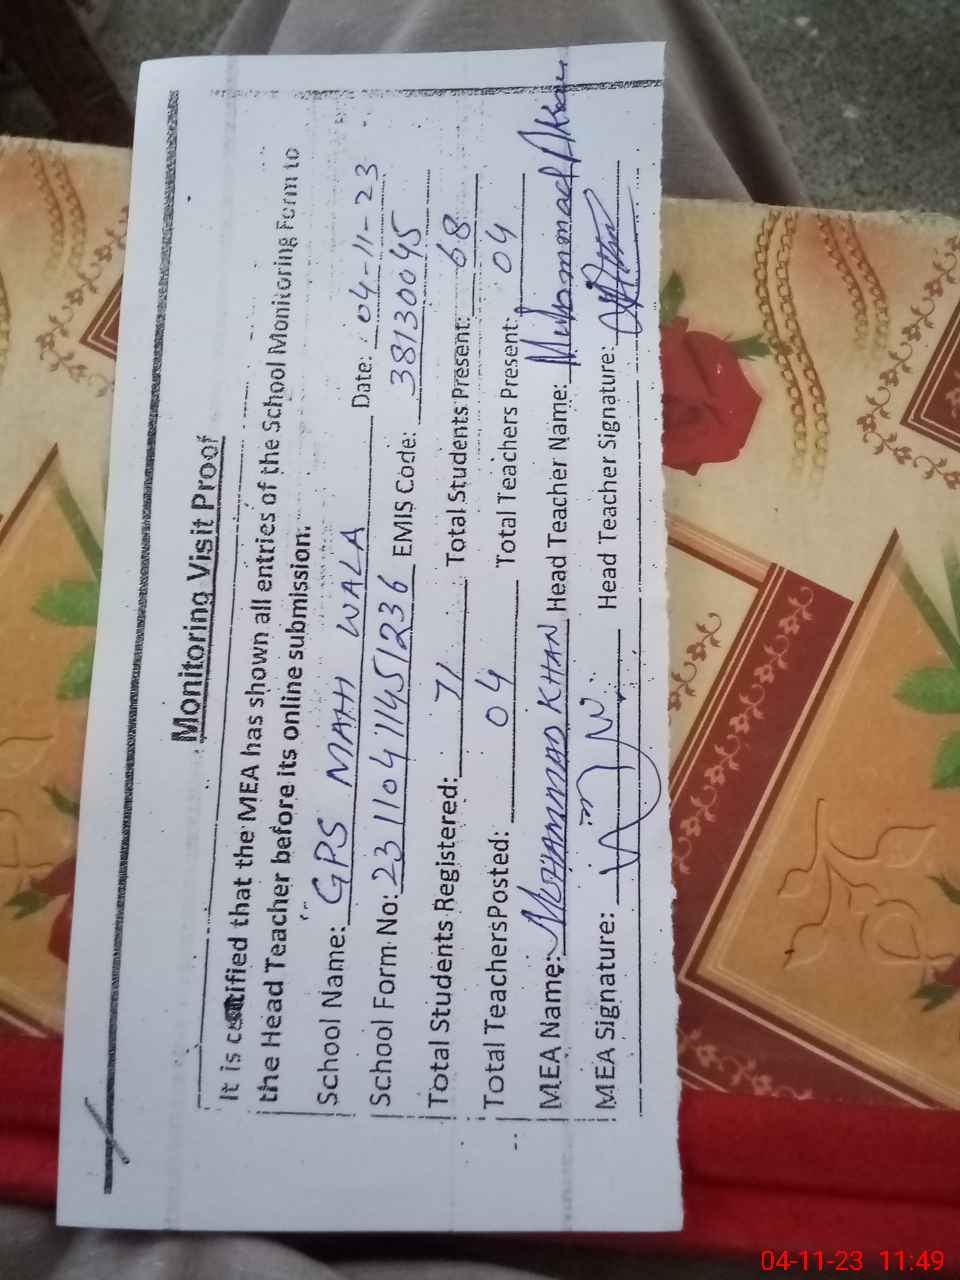 Monitoring Visit Proof
It is certified that the MEA has shown all entries of the School Monitoring Form to
the Head Teacher before its online submission.
School Name: GPS MAHI WALA Date: 04-11-23
School Form No: 23110411451236 EMIS Code: 38130045
Total Students Registered: 71 Total Students Present: 68
Total TeachersPosted: 04 Total Teachers Present: 04
MEA Name: MOHAMMAD KHAN Head Teacher Name: Muhammad
MEA Signature: Head Teacher Signature:
04-11-23 11:49